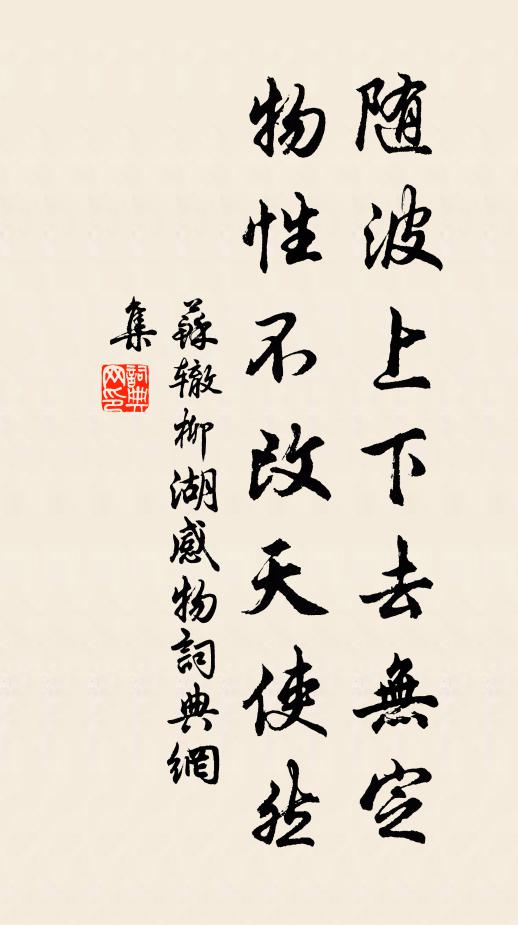 随波上下去無定
物性不改天使然
蘇辙柳湖感物詞典網
集
詞典
网印